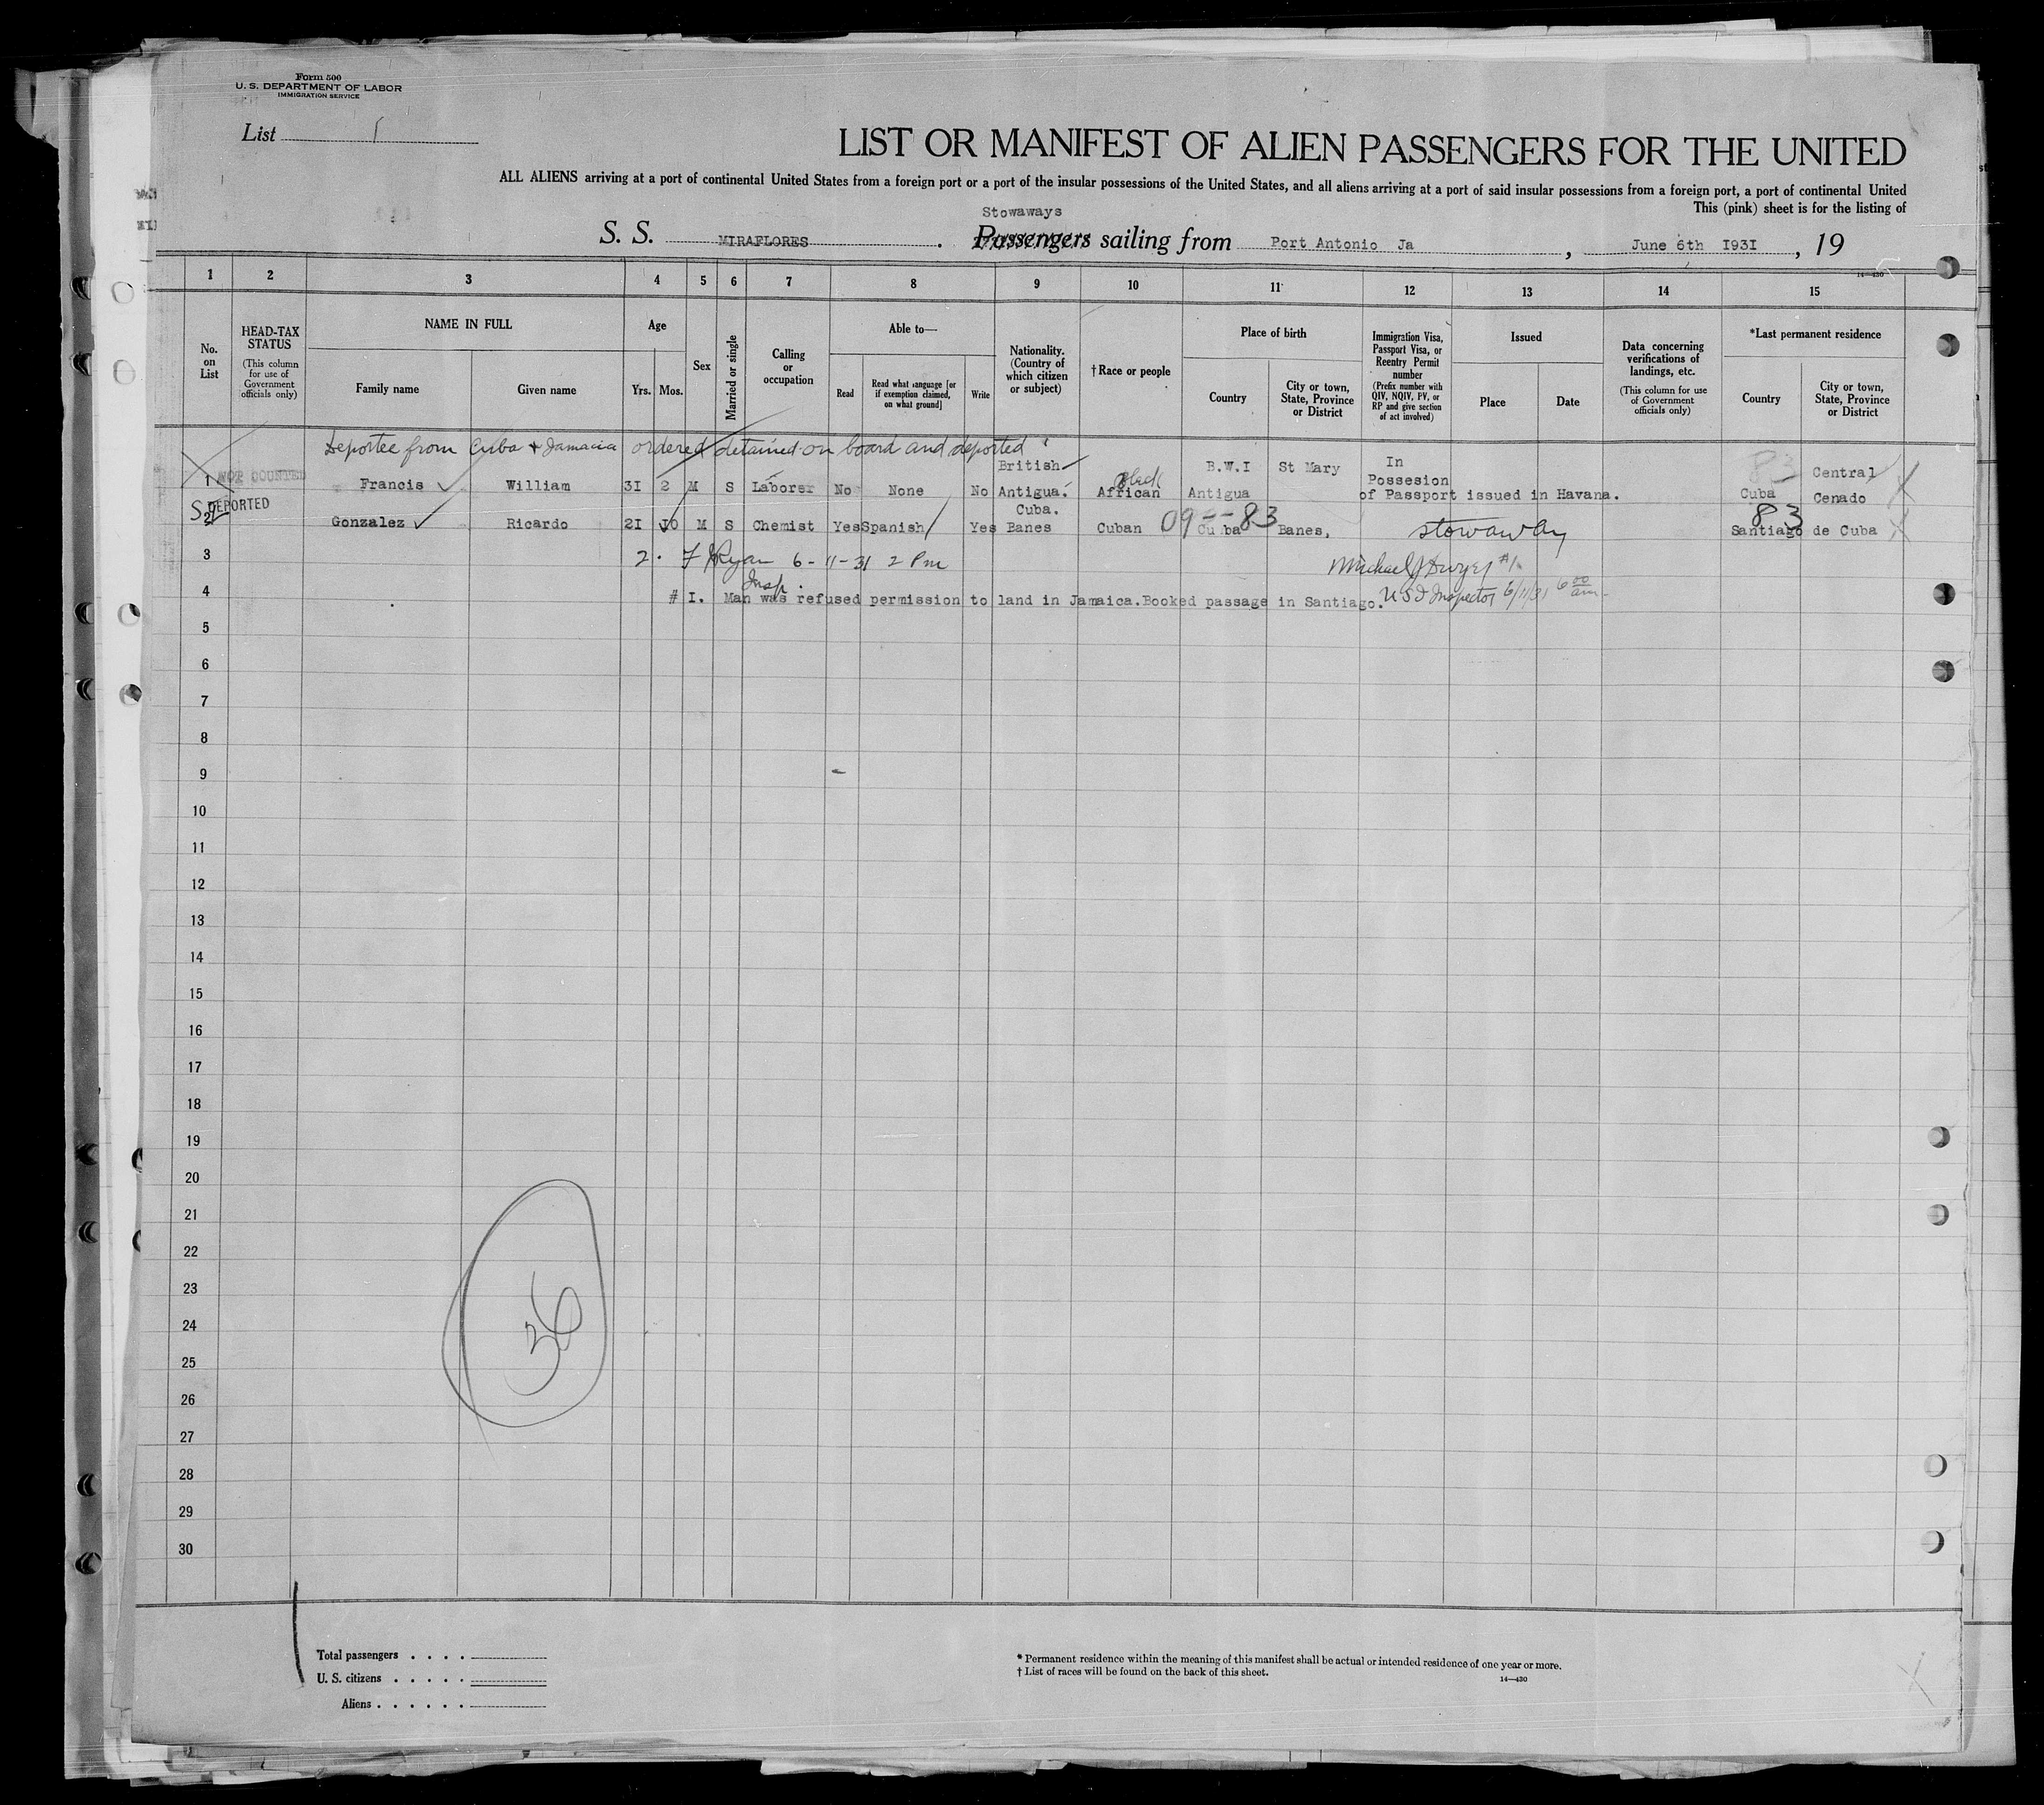 Form 500
U. S. DEPARTMENT OF LABOR
IMMIGRATION SERVICE
List 1
LIST OR MANIFEST OF ALIEN PASSENGERS FOR THE UNITED
ALL ALIENS arriving at a port of continental United States from a foreign port or a port of the insular possessions of the United States, and all aliens arriving at a port of said insular possessions from a foreign port, a port of continental United
This (pink) sheet is for the listing of
Stowaways
S. S. MIRAFLORES. Passengers sailing from Port Antonio Ja, June 6th I93I, 19
14—430
1 2 3 4 5 6 7 8 9 10 11 12 13 14 15
No. on List
HEAD-TAX STATUS (This column for use of Government officials only)
NAME IN FULL
Family name
Given name
Age
Yrs.
Mos.
Sex
Married or single
Calling or occupation
Able to—
Read
Read what language [or if exemption claimed, on what ground]
Write
Nationality. (Country of which citizen or subject)
†Race or people
Place of birth
Country
City or town, State, Province or District
Immigration Visa, Passport Visa, or Reentry Permit number (Prefix number with QIV, NQIV, PV, or RP and give section of act involved)
Issued
Place
Date
Data concerning verifications of landings, etc. (This column for use of Government officials only)
*Last permanent residence
Country
City or town, State, Province or District
Deportee from Cuba + Jamaica ordered detained on board and deported
1 NOT COUNTED Francis William 3I 2 M S Laborer No None No British Antigua. Black African B.W.I Antigua St Mary In Possesion of Passport issued in Havana. 83 Cuba Central Cenado
2 DEPORTED Gonzalez Ricardo 2I I0 M S Chemist Yes Spanish Yes Cuba. Banes Cuban 09--83 Cuba Banes, stowaway 83 Santiago de Cuba
3 2. F J Ryan 6-11-31 2 Pm Michael J Dwyer #1.
Insp.
4 # I. Man was refused permission to land in Jamaica. Booked passage in Santiago. U S I Inspector 6/11/31 6 00 am
5
6
7
8
9
10
11
12
13
14
15
16
17
18
19
20
21
22
23
24
25
26
27
28
29
30
36
Total passengers . . . .
U. S. citizens . . . . .
Aliens . . . . . .
* Permanent residence within the meaning of this manifest shall be actual or intended residence of one year or more.
† List of races will be found on the back of this sheet.
14—430